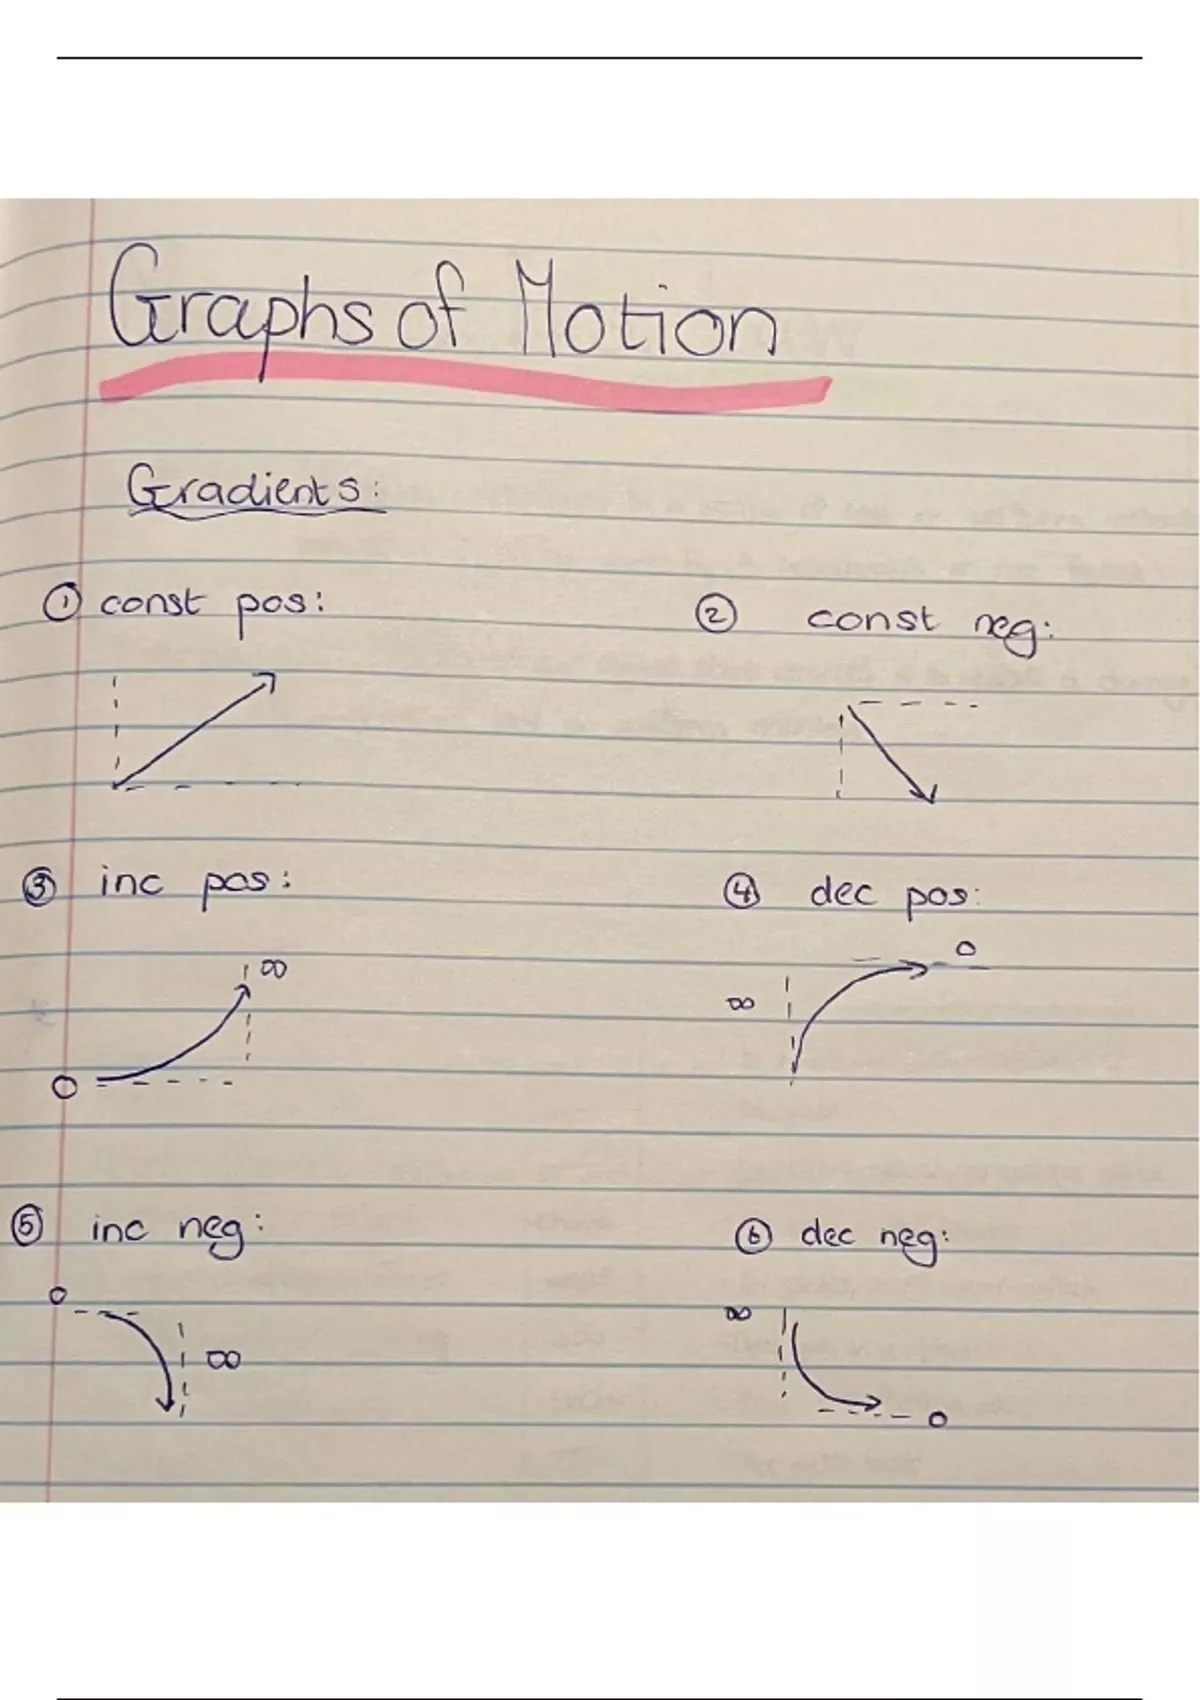 Graphs of Motion
Gradients:
① const pos:
② const neg:
③ inc pos:
④ dec pos:
∞
0
∞
0
⑤ inc neg:
⑥ dec neg:
0
∞
∞
0